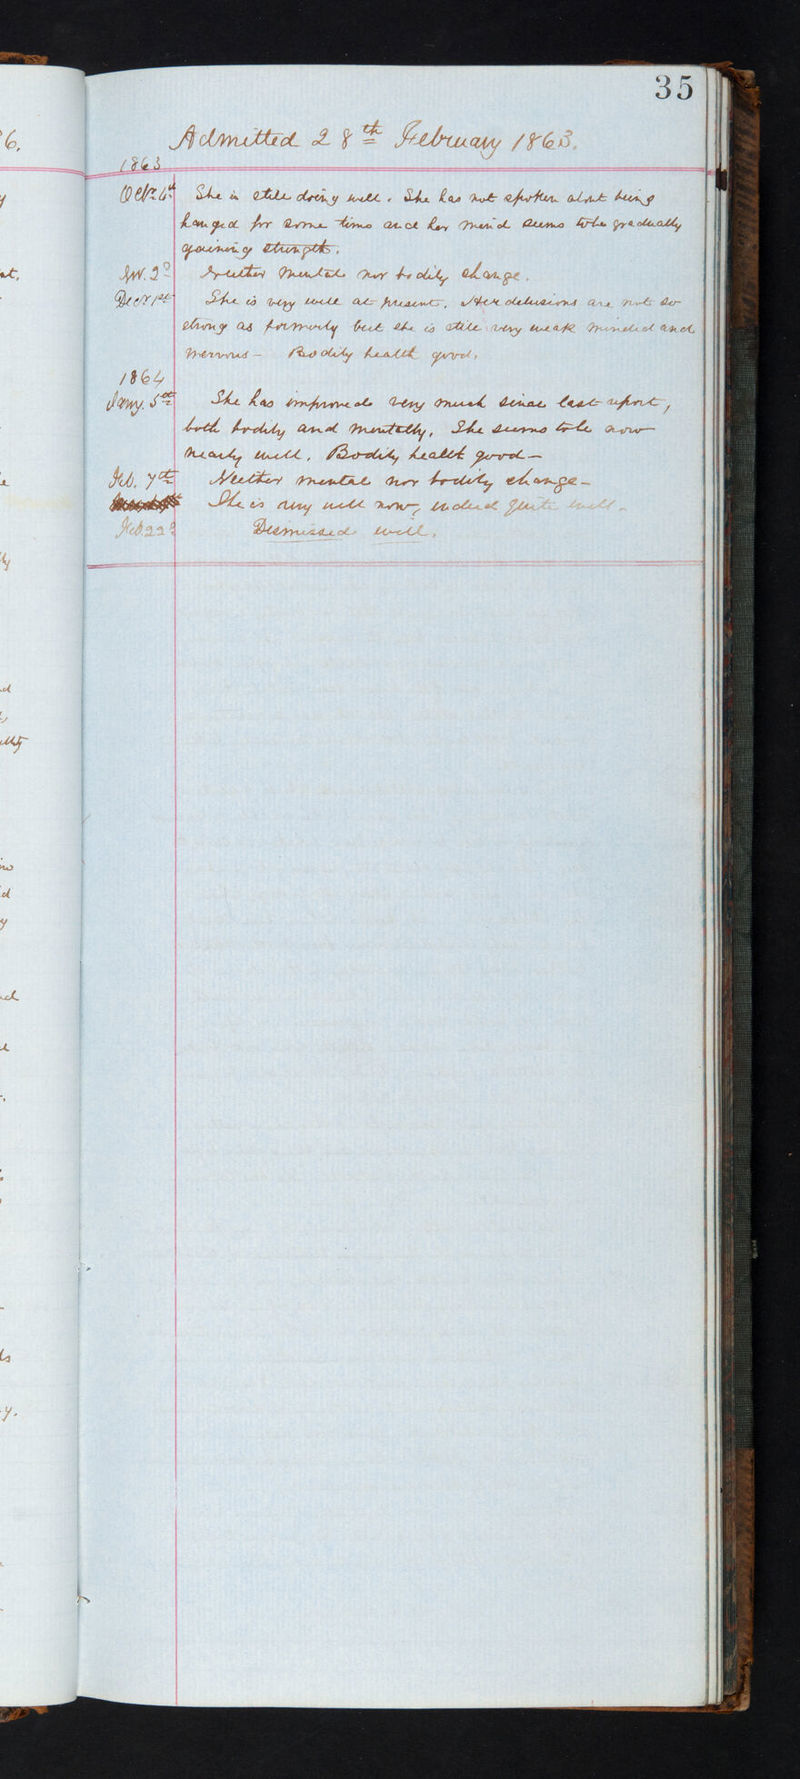 35
Admitted 28th February 1863.
1863
Octr. 6th She is still doing well. She has not spoken about being
hanged for some time and her mind seems to be gradually
gaining strength.
Nov. 2d Neither mental nor bodily change.
Decr 1st She is very well at present. Her delusions are not so
strong as formerly but she is still very weak minded and
nervous – Bodily health good.
1864
Jany. 5th She has improved very much since last report,
both bodily and mentally. She seems to be now
nearly well. Bodily health good –
Feb. 7th Neither mental nor bodily change –
She is very well now, indeed quite well.
Feb. 22d Dismissed well.